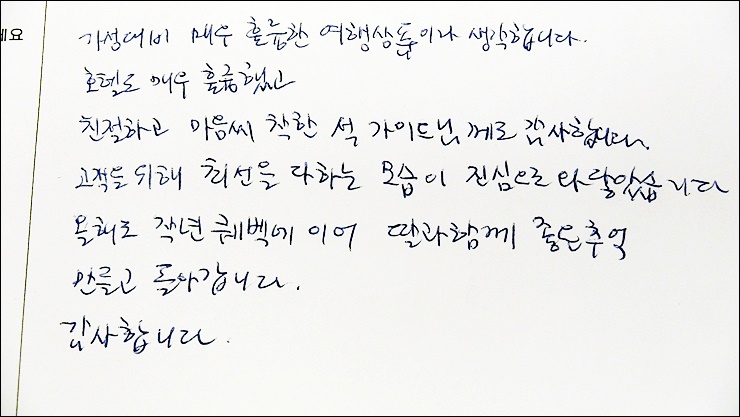 세요
가성대비 매우 훌륭한 여행상품이라 생각합니다.
호텔도 매우 훌륭했고
친절하고 마음씨 착한 석 가이드님께도 감사합니다.
고객을 위해 최선을 다하는 모습이 진심으로 와 닿았습니다
올해도 작년 퀘벡에 이어 딸과함께 좋은추억
만들고 돌아갑니다.
감사합니다.